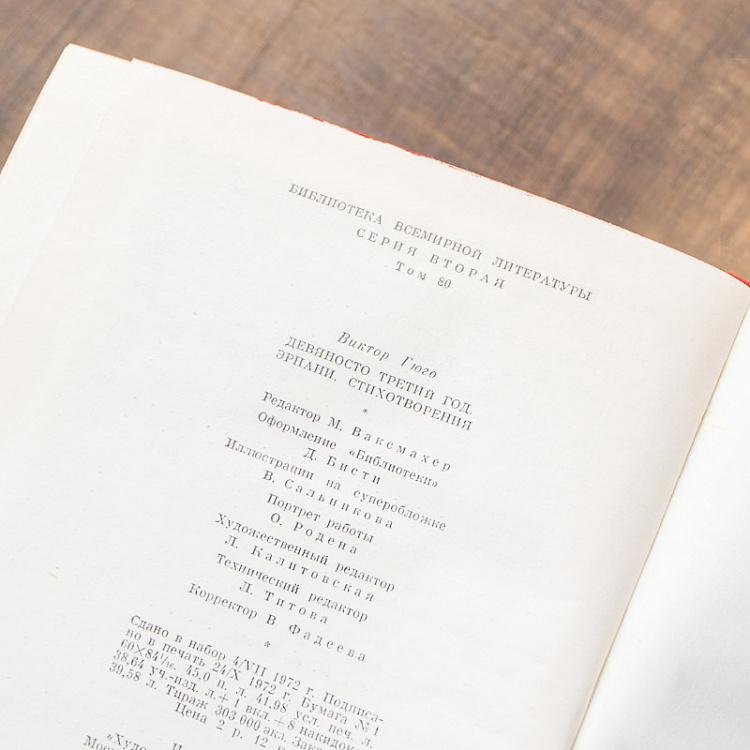 БИБЛИОТЕКА ВСЕМИРНОЙ ЛИТЕРАТУРЫ
СЕРИЯ ВТОРАЯ
Том 80
Виктор Гюго
ДЕВЯНОСТО ТРЕТИЙ ГОД.
ЭРНАНИ. СТИХОТВОРЕНИЯ
*
Редактор М. Ваксмахер
Оформление «Библиотеки»
Д. Бисти
Иллюстрации на суперобложке
В. Сальникова
Портрет работы
О. Родена
Художественный редактор
Л. Калитовская
Технический редактор
Л. Титова
Корректор В Фадеева
*
Сдано в набор 4/VII 1972 г. Подписа-
но в печать 24/X 1972 г. Бумага № 1
60×84¹/₁₆. 45,0 п. л. 41,98 усл. печ. л.
38,64 уч.-изд. л.+1 вкл.+8 накидок
39,58 л. Тираж 303 000 экз. Зак
Цена 2 р. 12 к
«Худо
Мос